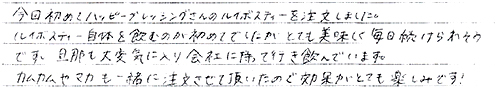 今回初めてハッピーブレッシングさんのルイボスティーを注文しました。
ルイボスティー自体を飲むのが初めてでしたがとても美味しく毎日続けられそう
です。旦那も大変気に入り会社に持って行き飲んでいます。
カムカムやマカも一緒に注文させて頂いたので効果がとても楽しみです!